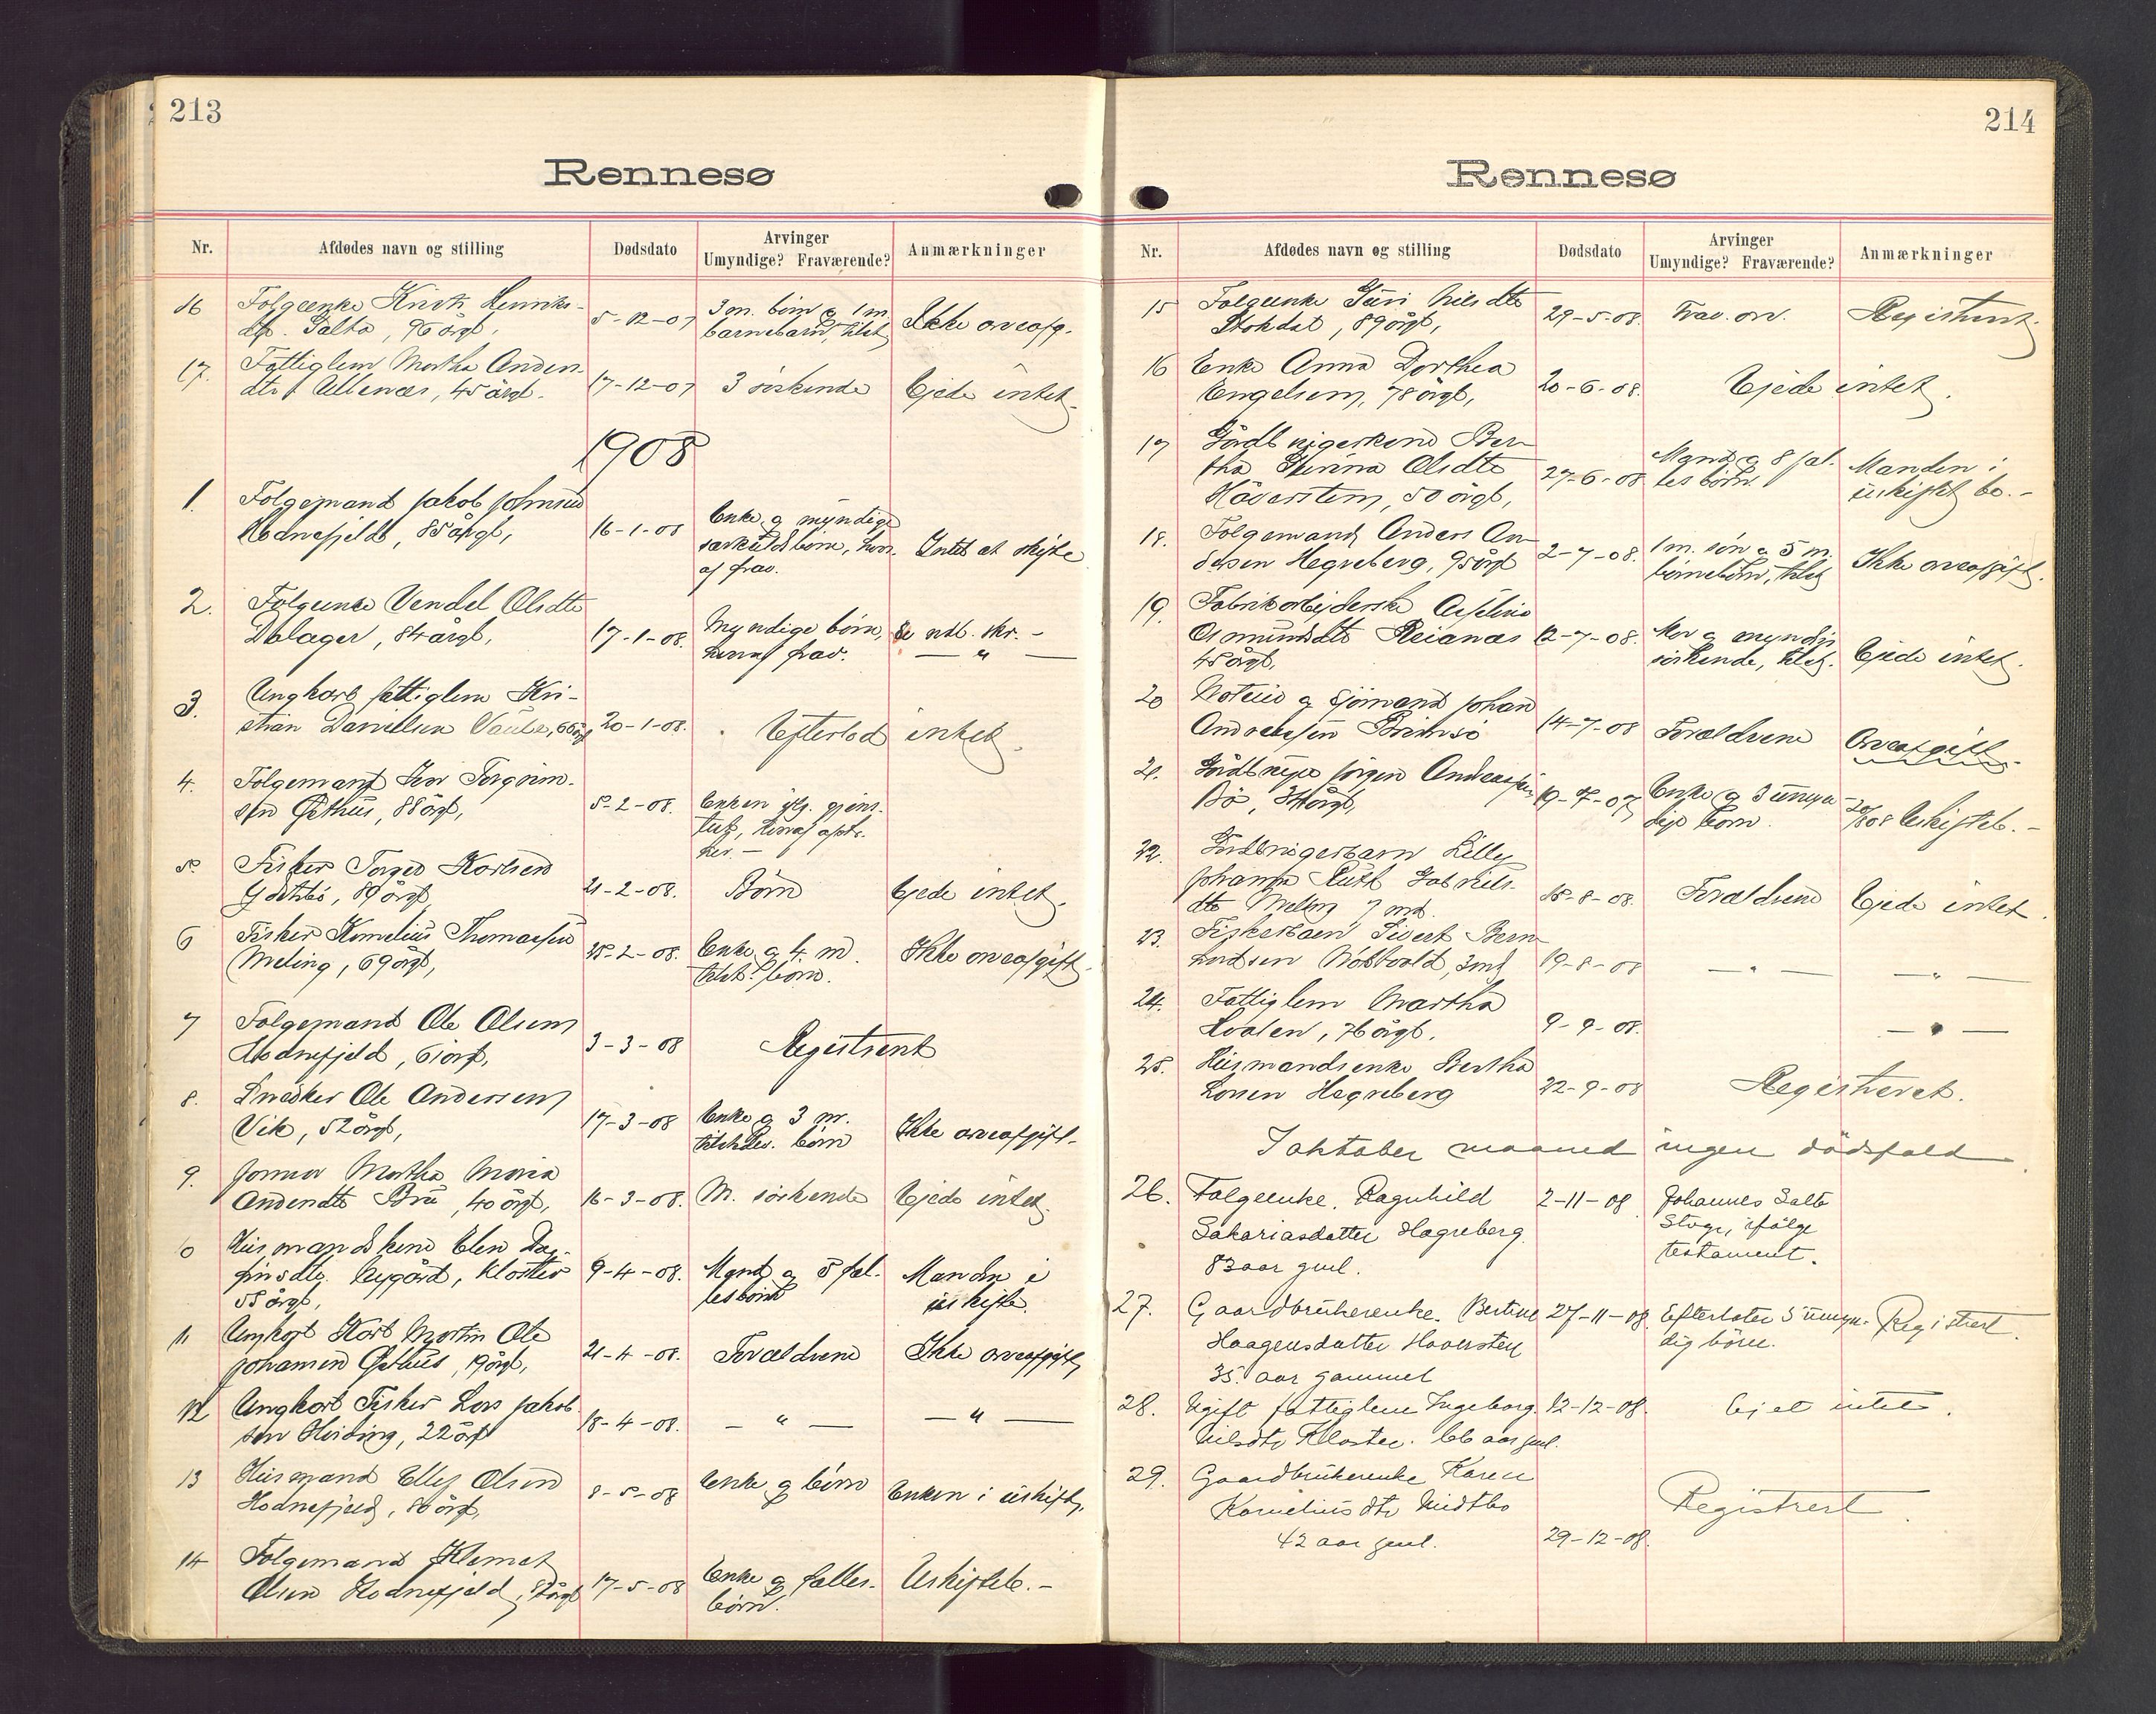 213
Rennesø
Nr. Afdødes navn og stilling Dødsdato Arvinger Umyndige? Fraværende? Anmærkninger
16 Folgeenke Kristi Henriks-
dtr. Galta, 96 årgl, 5-12-07 3 m. børn & 1 m. barnebarn, tilst. Ikke arveafg.
17. Fattiglem Martha Anders-
dtr Ullenæs, 45 årgl. 17-12-07 3 søskende Ejede intet.
1908
1. Folgemand Jakob Johnsen
Hodnefjeld, 85 årgl, 16-1-08 Enke & myndige
særkuldsbørn, hvor-
af frav. Intet at skifte
2. Folgeenke Vendel Olsdtr
Dalager, 84 årgl, 17-1-08. Myndige børn,
hvoraf frav. Se ndl. skr. -
— " —
3. Ungkarl fattiglem Kri-
stian Danielsen Vaula, 66 årgl 20-1-08. Efterlod intet.
4. Folgemand Iver Torgrim-
sen Østhus, 88 årgl, 5-2-08. Enken
5. Fisker Torger Karlsen
89 årgl, 21-2-08. Børn Ejede intet.
6 Fisker Kornelius Thomassen
Meling, 69 årgl, 25-2-08. Enke & 4 m.
tilst. børn. Ikke arveafgift.
7 Folgemand Ole Olsen
Hodnefjeld, 61 årgl, 3-3-08 Registrert
8. Snedker Ole Andersen
Vik, 52 årgl, 17-3-08 Enke & 3 m.
børn Ikke arveafgift.
9. Jomfru Martha Maria
Andersdtr Bru, 40 årgl, 16-3-08. M. søskende Ejede intet.
10 Husmandskone Elen Dag-
finsdtr. Nygård, Kloster
55 årgl, 9-4-08. Mand & 5 fæl-
lesbørn Manden i
uskifte.
11 Ungkarl Karl Martin Ole
Johansen Østhus, 19 årgl, 21-4-08. Forældrene Ikke arveafgift,
12 Ungkarl Fisker Lars Jakob-
sen Hviding, 22 årgl 18-4-08. — " — — " —
13 Husmand Elly Olsen
Hodnefjeld, 80 årgl, 8-5-08 Enke & børn Enken i uskifte,
14 Folgemand Klemet
Olsen Hodnefjeld, årgl 17-5-08 Enke & fælles-
børn. Uskifteb. -
214
Rennesø
Nr. Afdødes navn og stilling Dødsdato Arvinger Umyndige? Fraværende? Anmærkninger
15 Folgeenke Guri Nilsdtr
Stokdal, 89 årgl, 29-5-08. Frav. arv. Registrert
16 Enke Anna Dorthea
Engelsen, 78 årgl, 20-6-08. Ejede intet.
17 Gårdbrugerkone Ber-
tha Serina Olsdtr
Håverstein, 50 årgl, 27-6-08 Mand & 8 fæl-
lesbørn Manden i
uskiftet bo. -
18. Folgemand Anders An-
dersen Hegreberg, 95 årgl 2-7-08. 1 m. søn & 5 m.
børnebørn, tilst. Ikke arveafgift.
19. Fabrikarbejderske Asseline
Osmundsdtr Reianæs
45 årgl, 12-7-08. Mor & myndige
søskende, tilst. Ejede intet.
20 & Sjømand Johan
Andreassen Brimsø 14-7-08 Forældrene Arveafgift.
21. Gårdbruger Jørgen Andreassen
Bø, 34 årgl, 19-7-07 Enke & 3 umyn-
dige børn. 20/8 08 Uskifteb. -
22. Gårdbrugerbarn Lilly
Johanna Ruth Gabriels-
dtr Meling 7 md. 15-8-08. Forældrene Ejede intet.
23. Fiskerbarn Sivert Bern-
hardsen Nåbtvold, 3 md 19-8-08 — " — — " —
24. Fattiglem Martha
Hvalen, 76 årgl. 9-9-08. — " —
25. Husmandsenke Bertha
Larsen Hegreberg 22-9-08 Registreret.
I oktober maaned ingen dødsfald.
26. Folgeenke. Ragnhild
Sakariasdatter Hegreberg
83 aar gml. 2-11-08 Johannes Salte
Stoge, ifølge
testament.
27. Gaardbrukerenke. Bertine
Haagensdatter Haversten
35. aar gammel 27-11-08. Efterlater 5 umyn-
dig børn. Registrert.
28. Ugift fattiglem Ingeborg
Nilsdtr Kloster. 66 aar gml. 12-12-08. Ejet intet.
29. Gaardbrukerenke Karen
Kornelius dtr Midtbø
42 aar gml. 29-12-08. Registrert.